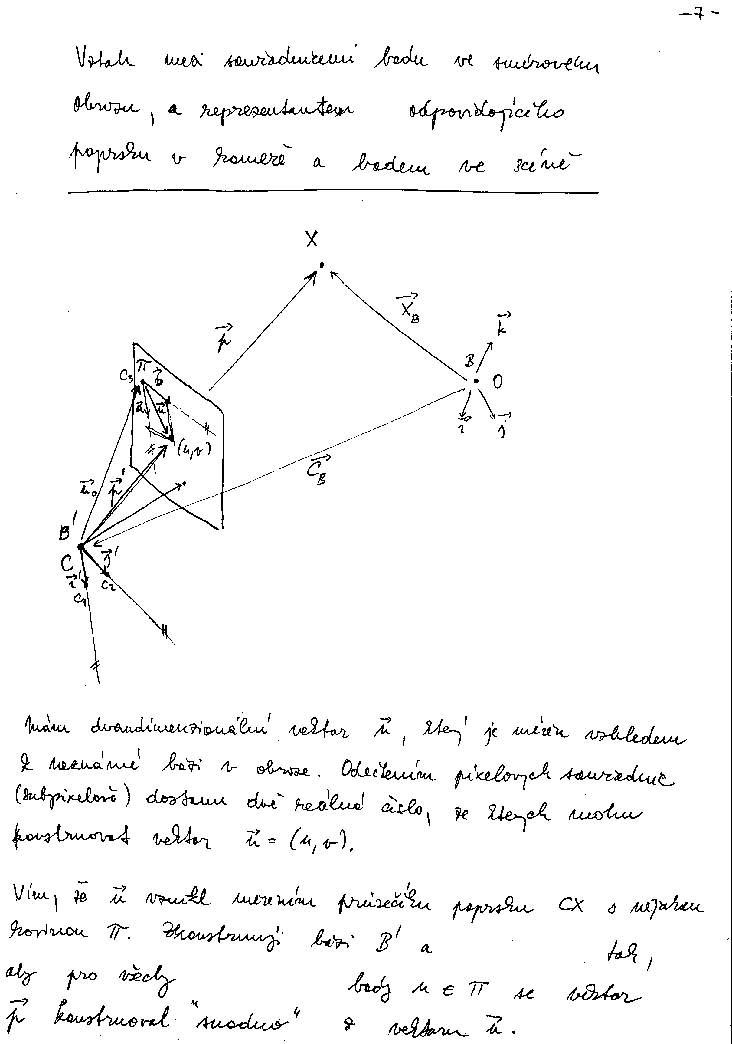 -7-
Vztah mezi souřadnicemi bodu ve směrovém
obrazu, a reprezentantem odpovídajícího
paprsku v kameře a bodem ve scéně
X
p
X_B
k
B O
i j
π b
c3
a u
(u,v)
C_B
u0 p'
B'
C j'
i' c2
c1
Mám dvoudimenzionální vektor u, který je měřen vzhledem
k neznámé bázi v obraze. Odečtením pixelových souřadnic
(subpixelově) dostanu dvě reálná čísla, ze kterých mohu
konstruovat vektor u = (u, v).
Vím, že u vznikl měřením průsečíku paprsku CX s nějakou
rovinou π. Zkonstruuji bázi B' a tak,
aby pro všechy body u ∈ π se vektor
p konstruoval "snadno" z vektoru u.